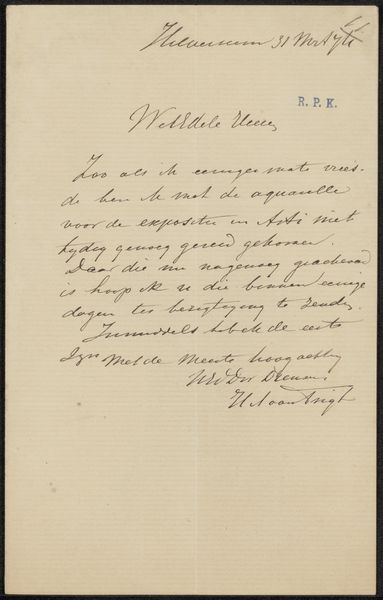 Hilversum 31 Mrt
R. P. K.
WelEdele Heer,
Zoo als ik eenigermate vrees-
de ben ik met de aquarelle
voor de expositie in Arti niet
tydig genoeg gereed gekomen.
Daar die nu nagenoeg
is hoop ik u die binnen eenige
dagen ter bezigtiging te zenden
Inmiddels heb ik de eer te
zyn met de meeste hoogachting
UEd. Dw. Dienaar
van Trigt